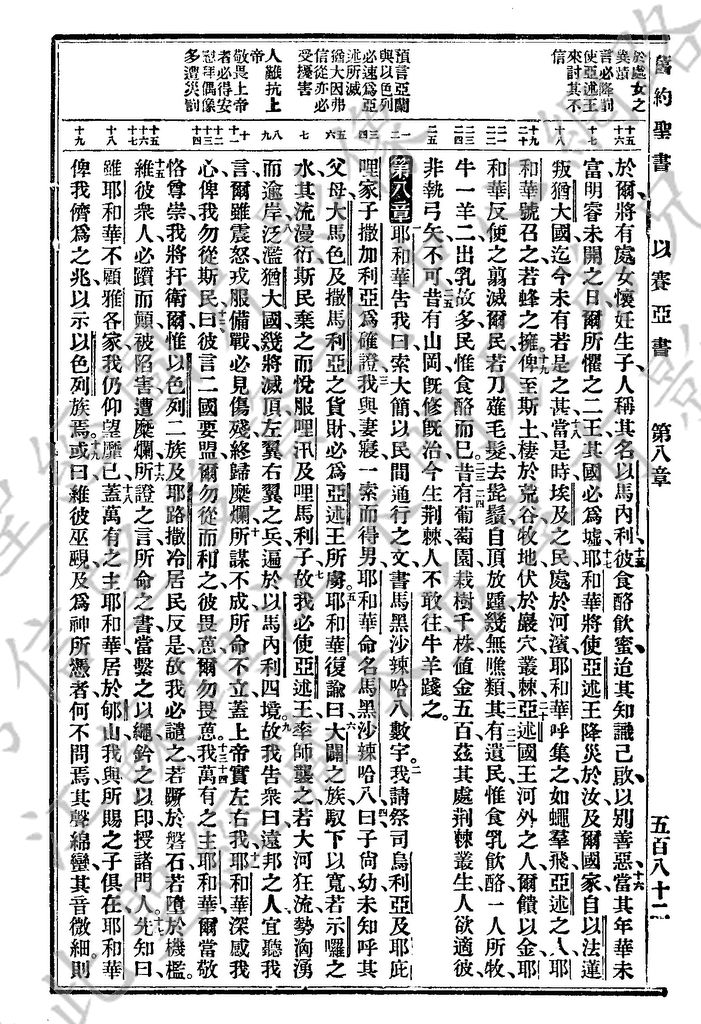 舊約聖書 以賽亞書 第八章 五百八十二
於處女之
異蹟
言必降罰
使亞述王
來討其不
信
預言亞蘭
與以色列
必速為亞
述所滅
猶大因弗
信從亦必
受擾害
人難抗上
帝
敬畏上帝
者必得安
拜偶像
多遭災罰
於爾將有處女懷妊生子、人稱其名以馬內利、彼食酪飲蜜、迨其知識已啟、以別善惡、當其年華未
富、明睿未開之日、爾所懼之二王、其國必為墟、耶和華將使亞述王降災於汝、及爾國家、自以法蓮
叛猶大國、迄今未有若是之甚、當是時、埃及之民、處於河濱、耶和華呼集之、如蠅羣飛、亞述之人、耶
和華號召之、若蜂之擁、俾至斯土、棲於荒谷、牧地、伏於巖穴、叢棘、亞述國王、河外之人、爾饋以金、耶
和華反使之翦滅爾民、若刀薙毛髮、去髭鬚、自頂放踵、幾無噍類、其有遺民、惟食乳飲酪、一人所牧、
牛一羊二、出乳故多、民惟食酪而已。昔有葡萄園、栽樹千株、值金五百、茲其處荊棘叢生、人欲適彼、
非執弓矢不可、昔有山岡、既修既治、今生荊棘、人不敢往、牛羊踐之。
第八章 耶和華告我曰、索大簡、以民間通行之文、書馬黑沙辣哈八數字、我請祭司烏利亞、及耶庇
哩家子撒加利亞為確證、我與妻寢、一索而得男、耶和華命名馬黑沙辣哈八、曰、子尚幼、未知呼其
父母、大馬色及撒馬利亞之貨財、必為亞述王所虜。耶和華復諭曰、大闢之族、馭下以寬、若示囉之
水、其流漫衍、斯民棄之、而悅服哩汛及哩馬利子、故我必使亞述王率師襲之、若大河狂流、勢洶湧
而逾岸、泛濫猶大國、幾將滅頂、左翼右翼之兵、遍於以馬內利四境、故我告衆曰、遠邦之人、宜聽我
言、爾雖震怒、戎服備戰、必見傷殘、終歸糜爛、所謀不成、所命不立、蓋上帝實左右我、耶和華深感我
心、俾我勿從斯民、曰、彼言二國要盟、爾勿從而和之、彼畏葸、爾勿畏葸、我萬有之主耶和華、爾當敬
恪尊崇、我將扞衛爾、惟以色列二族、及耶路撒冷居民反是、故我必譴之、若躓於磐石、若墮於機檻、
維彼衆人、必躓而顛、被陷害、遭糜爛、所證之言、所命之書、當繫之以繩、鈐之以印、授諸門人、先知曰、
雖耶和華不顧雅各家、我仍仰望靡已、蓋萬有之主耶和華居於郇山、我與所賜之子俱在、耶和華
俾我儕為之兆、以示以色列族焉。或曰、維彼巫覡、及為神所憑者、何不問焉、其聲綿蠻、其音微細、則